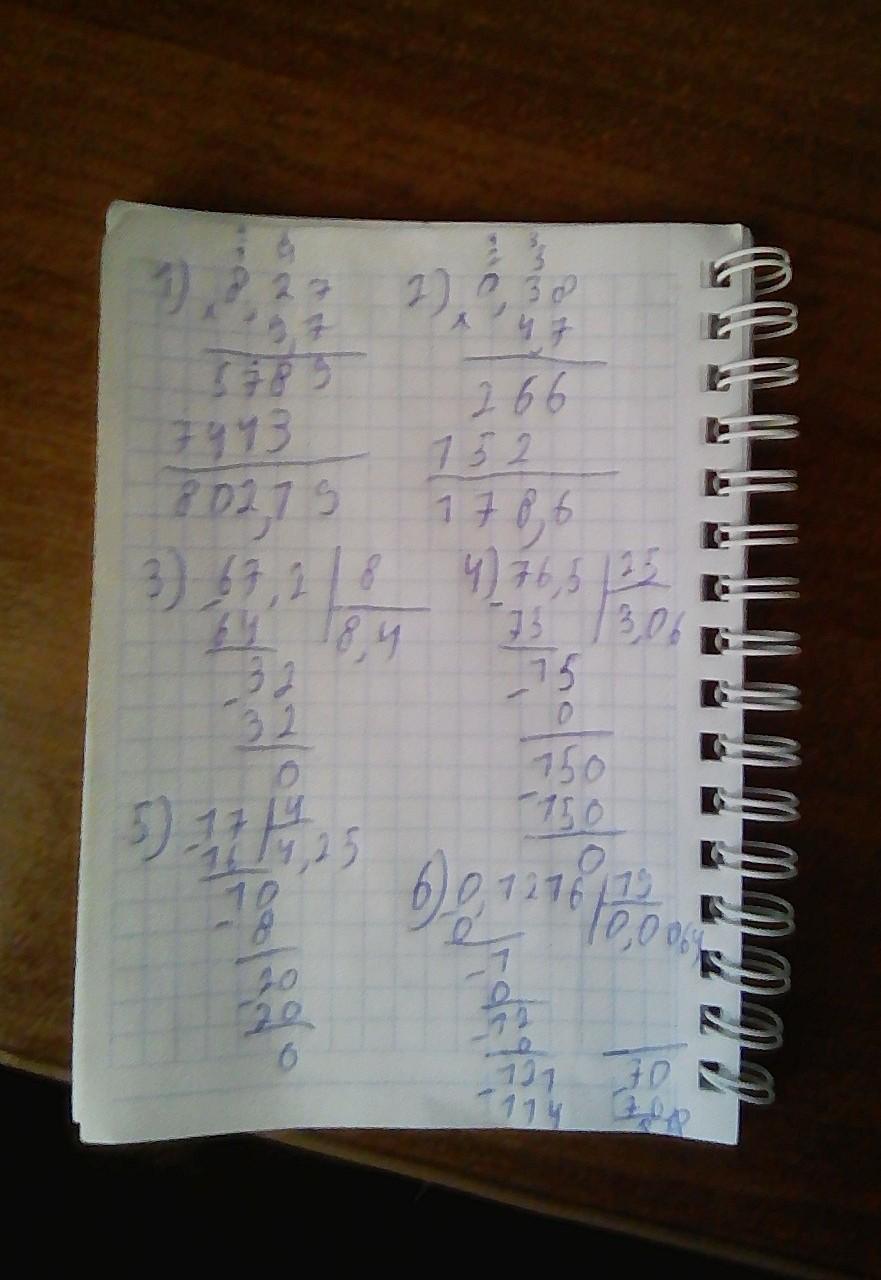 1) 8,27
× 9,7
5789
7443
802,19
2) 0,38
× 47
266
152
178,6
3) 67,2 | 8
- 64 8,4
- 32
32
0
4) 76,5 | 25
- 75 3,06
- 15
0
150
- 150
0
5) 17 | 4
- 16 4,25
10
- 8
20
- 20
0
6) 0,1216 | 19
- 0 0,0064
- 1
0
- 12
0
121
- 114
70